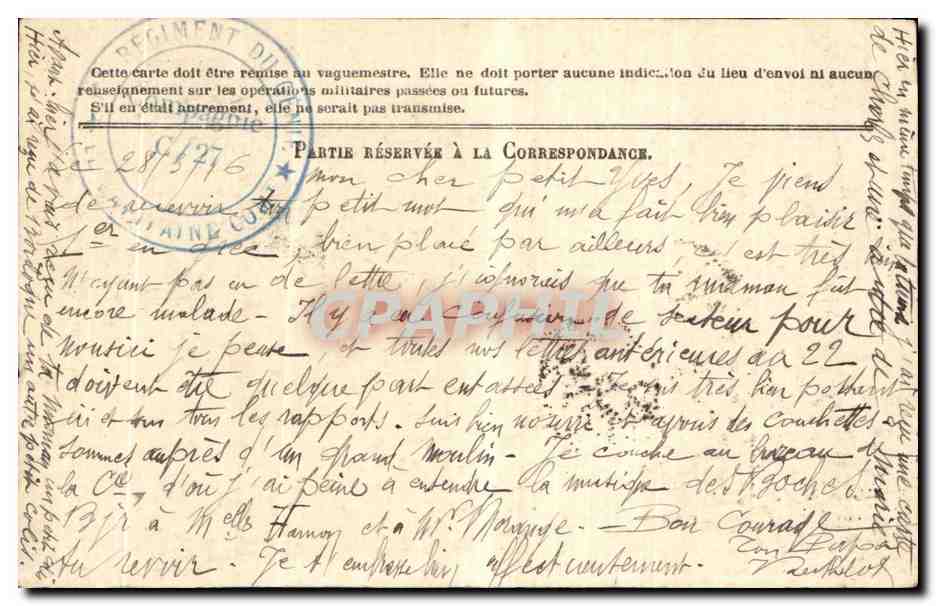 RÉGIMENT DU GÉNIE
Compagnie
CAPITAINE COM
Cette carte doit être remise au vaguemestre. Elle ne doit porter aucune indication du lieu d'envoi ni aucun
renseignement sur les opérations militaires passées ou futures.
S'il en était autrement, elle ne serait pas transmise.
PARTIE RÉSERVÉE À LA CORRESPONDANCE.
mon cher petit Yves, Je viens
de recevoir ton petit mot qui m'a fait bien plaisir
bien placé par ailleurs, c'est très
N'ayant pas eu de lettre, j'ignorais que ta maman fut
encore malade - Il y a eu confusion de secteur pour
nous ici je pense, et toutes nos lettres antérieures au 22
doivent être quelque part entassées Je suis très bien portant
ici et sous tous les rapports. Suis bien nourri et avons des couchettes
Sommes auprès d'un grand moulin - Je couche au bureau de
la Cie, d'où j'ai peine à entendre la musique des Boches.
Bjr à Melle Hamon et à Mr - Bon Courage
Ton Papa
Au revoir. Je t'embrasse bien affectueusement.
Berthelot
Hier en même temps que la tienne j'ai reçu une carte
de
Hier, j'ai reçu de un autre petit colis.
CPAPHIL